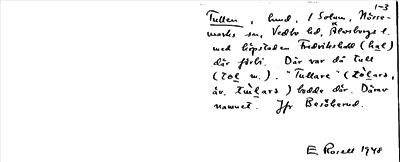 1-3
Tullen, lund, i Solum, Nösse-
marks sn, Vedbo hd, Älvsborgs l.
med köpstaden Fredrikshald (hal)
där förbi. Där var då tull
(tol m.). "Tullare" (tòlara,
äv. ) bodde där. Därav
namnet. Jfr Besökerud.
E Rosell 1948